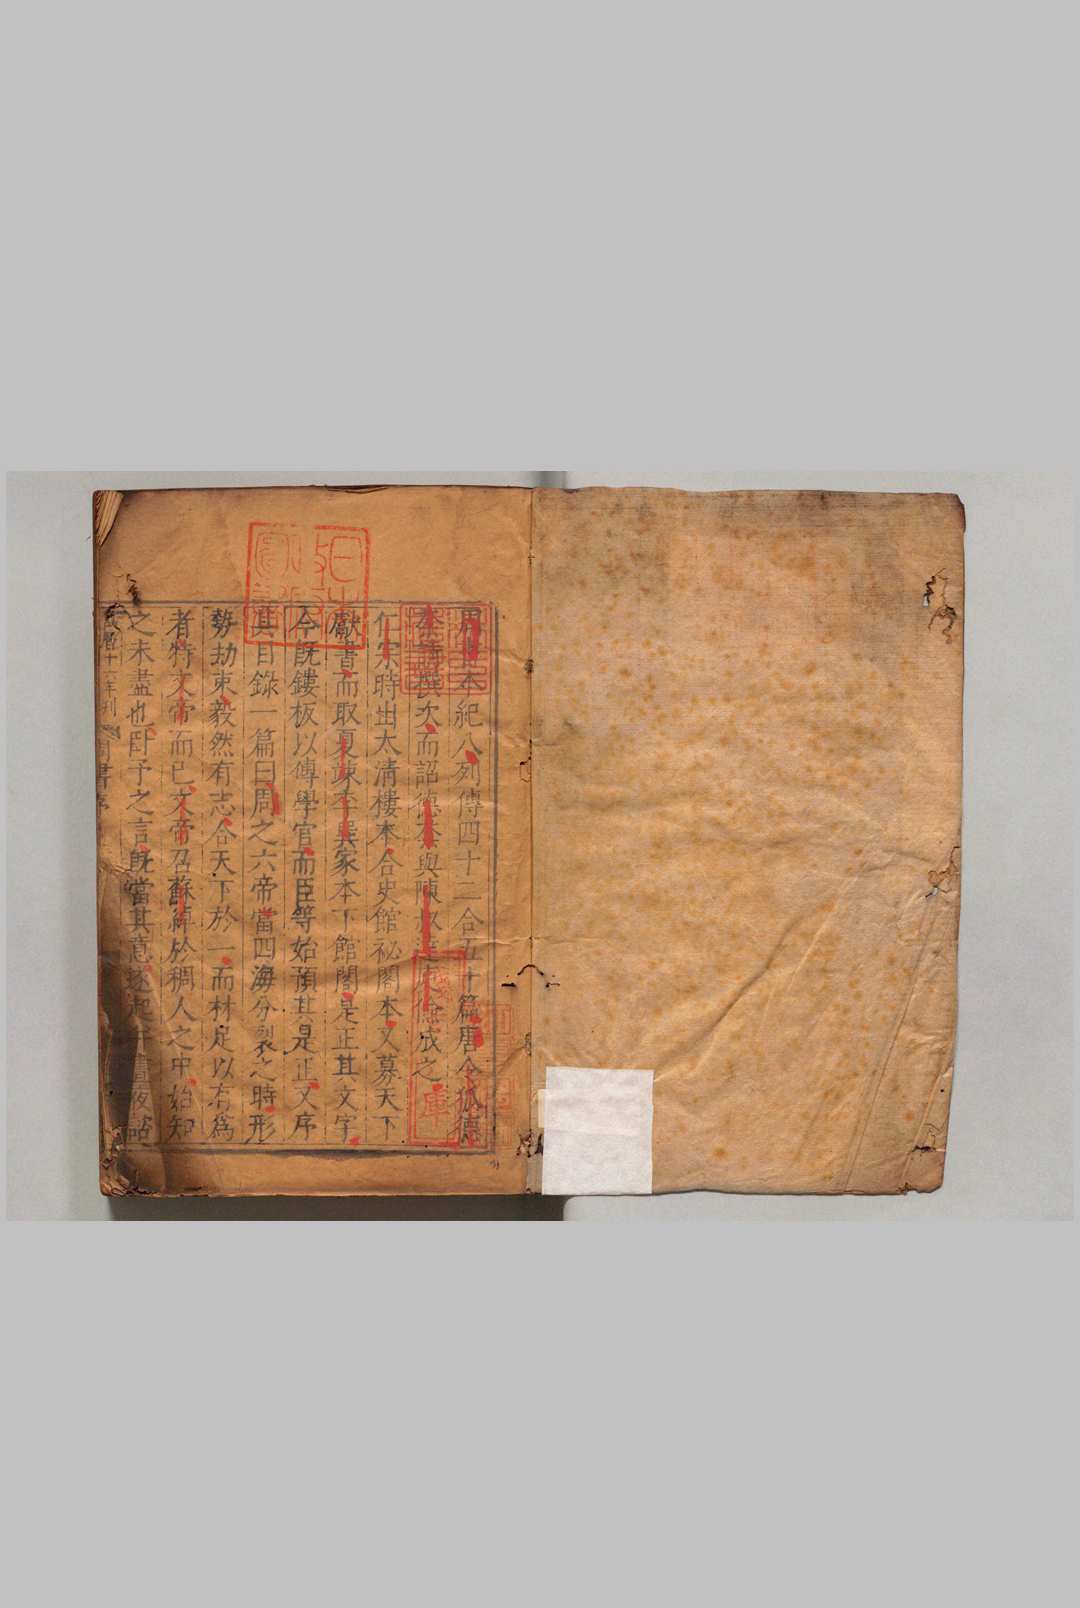 周書本紀八列傳四十二合五十篇唐令狐德
棻請撰次而詔德棻與陳叔達庾儉成之
仁宗時出太清樓本合史館祕閣本又募天下
獻書而取夏竦李巽家本下館閣是正其文字
今旣鏤板以傳學官而臣等始預其是正又序
其目錄一篇曰周之六帝當四海分裂之時形
勢劫束毅然有志合天下於一而材足以有爲
者特文帝而已文帝召蘇綽於稠人之中始知
之未盡也臥予之言旣當其意遂起
晝夜
萬曆十六年刊
周書序